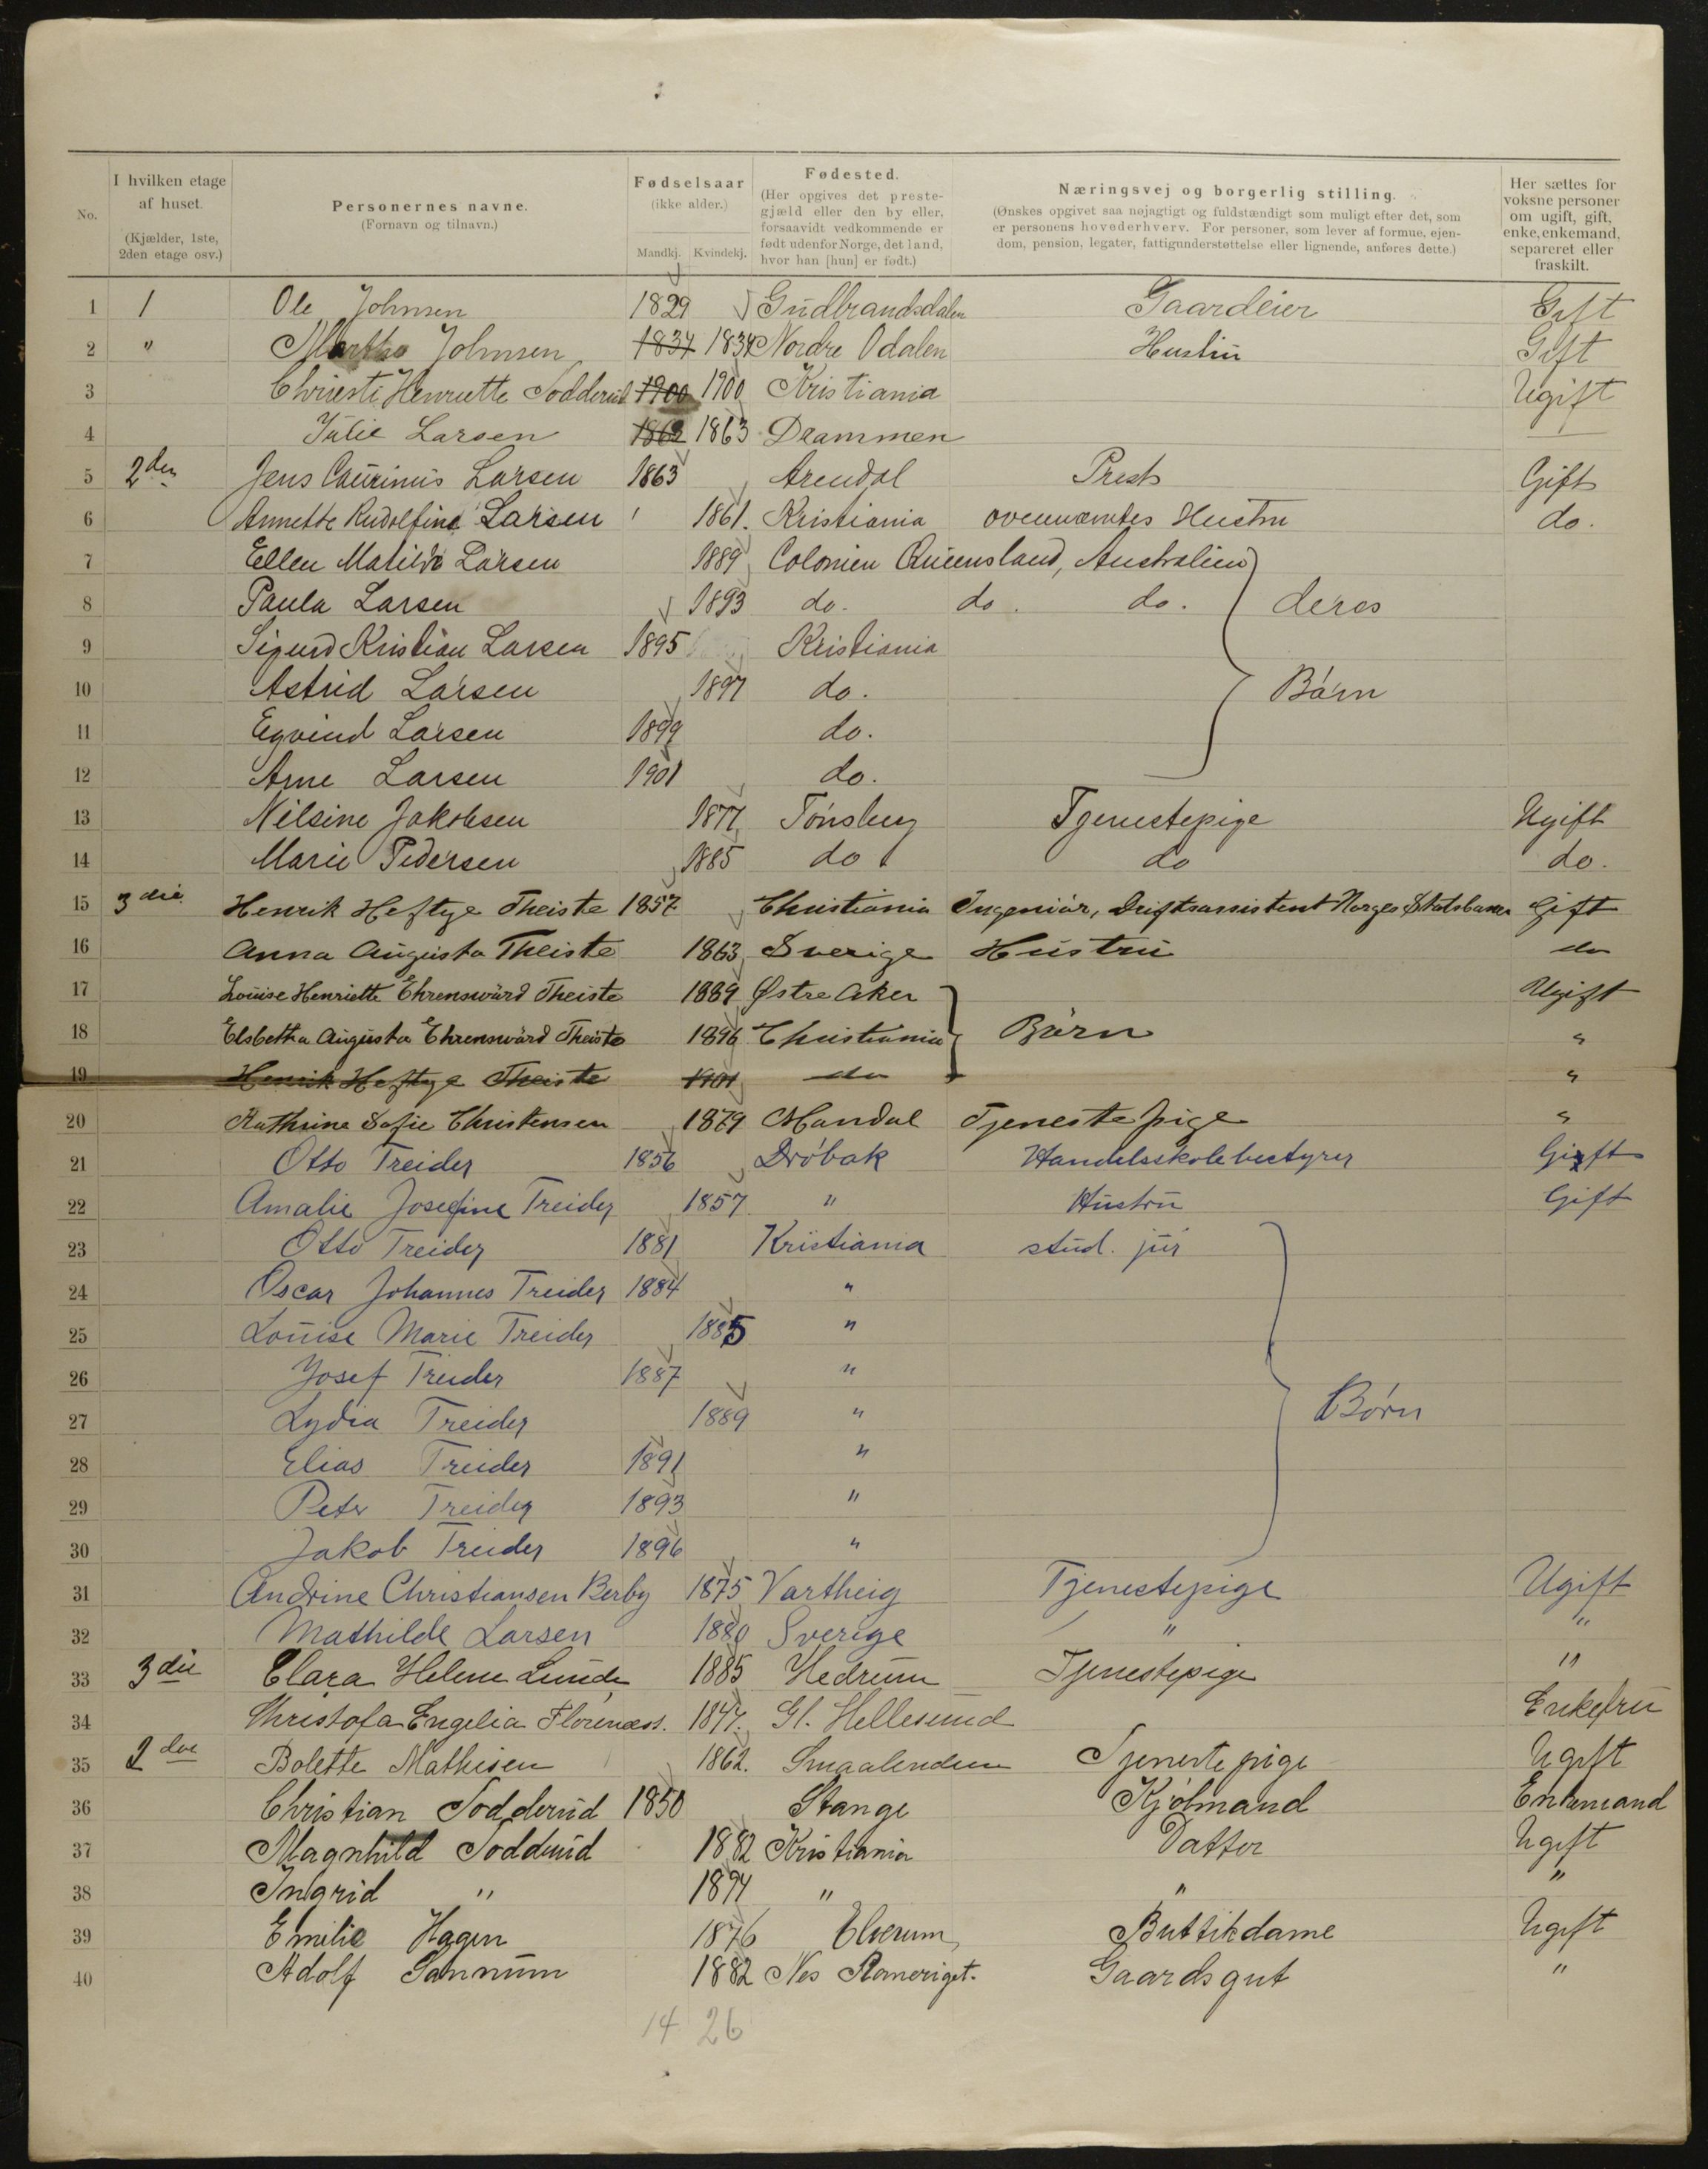 No.
I hvilken etage af huset. (Kjælder, 1ste, 2den etage osv.)
Personernes navne. (Fornavn og tilnavn.)
Fødselsaar (ikke alder.) Mandkj. Kvindekj.
Fødested. (Her opgives det prestegjæld eller den by eller, forsaavidt vedkommende er født udenfor Norge, det land, hvor han [hun] er født.)
Næringsvej og borgerlig stilling. (Ønskes opgivet saa nøjagtigt og fuldstændigt som muligt efter det, som er personens hovederhverv. For personer, som lever af formue, ejendom, pension, legater, fattigunderstøttelse eller lignende, anføres dette.)
Her sættes for voksne personer om ugift, gift, enke, enkemand, separeret eller fraskilt.
1 1 Ole Johnsen 1829 Gudbrandsdalen Gaardeier Gift
2 " Martha Johnsen 1834 1834 Nordre Odalen Hustru Gift
3 Henriette Sodderud 1900 1900 Kristiania Ugift
4 Julie Larsen 1863 1863 Drammen
5 2den Jens Laurinus Larsen 1863 Arendal Prest Gift
6 Annette Rudolfine Larsen 1861. Kristiania ovennævntes Hustru do.
7 Ellen Matilde Larsen 1889 Colonien Queensland, Australien
8 Paula Larsen 1893 do. do. do. deres
9 Sigurd Kristian Larsen 1895 Kristiania
10 Astrid Larsen 1897 do. Børn
11 Eyvind Larsen 1899 do.
12 Arne Larsen 1901 do.
13 Nilsine Jakobsen 1877 Tønsberg Tjenestepige Ugift
14 Marie Pedersen 1885 do do do.
15 3die Henrik Heftye Theiste 1857 Christiania Ingeniør, Driftsassistent Norges Statsbaner Gift
16 Anna Augusta Theiste 1863 Sverige Hustru do
17 Louise Henriette Ehrenswärd Theiste 1889 Østre Aker Ugift
18 Elsbetha Augusta Ehrenswärd Theiste 1896 Christiania Børn "
19 Henrik Heftye Theiste 1901 do "
20 Kathrine Sofie Christensen 1879 Mandal Tjenestepige "
21 Otto Treider 1856 Drøbak Handelsskolebestyrer Gift
22 Amalie Josefine Treider 1857 " Hustru Gift
23 Otto Treider 1881 Kristiania stud. jur
24 Oscar Johannes Treider 1884 "
25 Louise Marie Treider 1885 "
26 Josef Treider 1887 "
27 Lydia Treider 1889 " Børn
28 Elias Treider 1891 "
29 Peter Treider 1893 "
30 Jakob Treider 1896 "
31 Andrine Christiansen Berby 1875 Vartheig Tjenestepige Ugift
32 Mathilde Larsen 1880 Sverige " "
33 3die Clara Helene Lunde 1885 Hedrum Tjenestepige "
34 Christofa Engelia 1847. Gl. Hellesund Enkefru
35 2den Bolette Mathisen 1862. Smaalenene Tjenestepige Ugift
36 Christian Sodderud 1850 Stange Kjølmand Enkemand
37 Magnhild Sodderud 1882 Kristiania Datter Ugift
38 Ingrid " 1894 " " "
39 Emilie Hagen 1876 Elverum Buttikdame Ugift
40 Adolf Sannum 1882 Nes Romeriget. Gaardsgut "
14 26